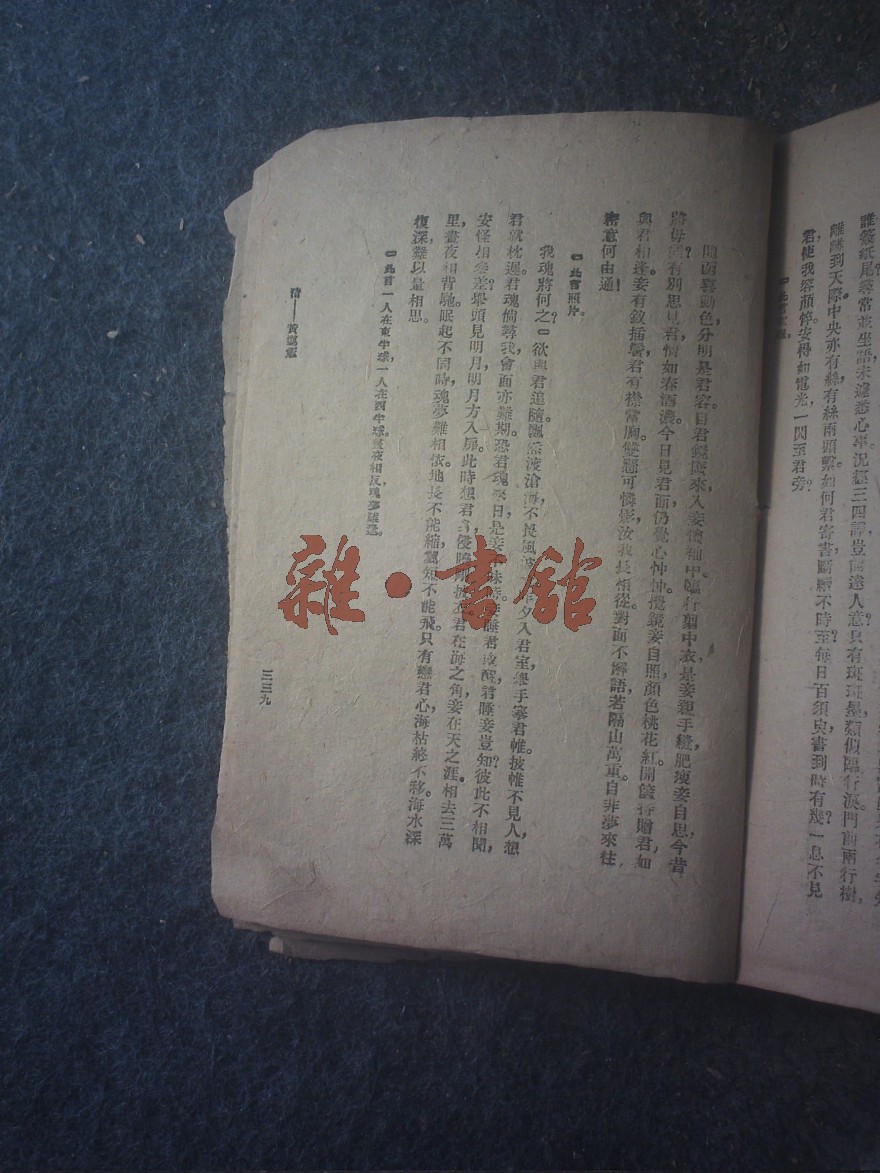 誰簽紙尾,尋常並坐語,未遽悉心事。況經三四譯,豈能達人意?只有斑斑墨,頗似臨行淚。門前兩行樹,
離離到天際。中央亦有絲,有絲兩頭繫。如何君寄書,斷續不時至?每日百須臾,書到時有幾?一息不見
君,使我容顏悴。安得如電光,一閃至君旁?
開函喜動色,分明是君容。自君鏡奩來,入妾懷袖中。臨行剪中衣,是妾親手縫,肥瘦妾自思,今昔
將毋同?有別思見君,情如春酒濃。今日見君面,仍覺心忡忡。攬鏡妾自照,顏色桃花紅。開篋持贈君,如
與君相逢。妾有釵插鬢,君有襟當胸。雙懸可憐影,汝我長相從。對面不解語,若隔山萬重。自非夢來往,
密意何由通!
㊀此言照片。
我魂將何之?㊀欲與君追隨。飄然渡滄海,不畏風波危。昨夕入君室,舉手搴君帷。披帷不見人,想
君就枕遲。君魂倘尋我,會面亦難期。恐君魂來日,是妾不寐時。妾睡君或醒,君睡妾豈知?彼此不相聞,
安怪相參差?舉頭見明月,明月方入扉。此時想君身,侵曉剛披衣。君在海之角,妾在天之涯。相去三萬
里,晝夜相背馳。眠起不同時,魂夢難相依。地長不能縮,翼短不能飛。只有戀君心,海枯終不移。海水深
復深,難以量相思。
㊀此言一人在東半球,一人在西半球。晝夜相反,魂夢難逢。
詩——黃遵憲
三三九
雜·書館